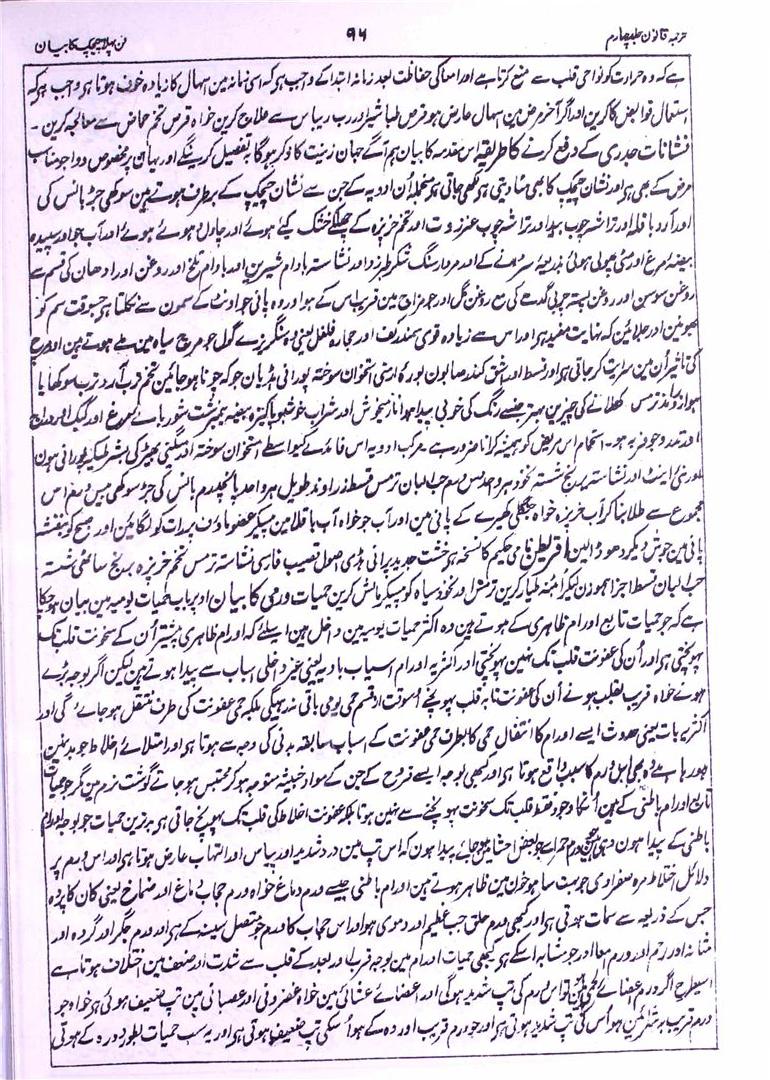 ترجمہ قانون جلد چہارم ۹۶ فن پہلا چیچک کا بیان
ہے کہ وہ حرارت کو نواحی قلب سے منع کرتا ہے اور امعا کی حفاظت بعد زمانہ ابتدا کے واجب ہے کہ اسی زمانہ مین اسہال کا زیادہ خوف ہوتا ہے واجب ہے کہ
استعمال قوابض کا کرین اور اگر آخر مرض مین اسہال عارض ہو قرص طباشیر اور رب ریباس سے علاج کرین خواہ قرص تخم حماض سے معالجہ کرین ۔
نشانات جدری کے دفع کرنے کا طریقہ اس مقدمہ کا بیان ہم آگے جہان زینت کا ذکر ہوگا بتفصیل کرینگے اور یہان پر مخصوص دوا جو مناسب
مرض کے بھی ہے اور نشان چیچک کا بھی مٹا دیتی ہے لکھی جاتی ہے منجملہ اُن ادویہ کے جن سے نشان چیچک کے برطرف ہوتے ہین سوکھی جڑ بانس کی
اور آرد باقلا اور تراشہ چوب بید اور تراشہ چوب عنزروت اور تخم خربزہ کے چھلکے خشک کیے ہوئے اور چاول دھوئے ہوئے اور آب جو اور سپیدہ
بیضہ مرغ اور اور مردار سنگ شکر طبرزد اور نشاستہ بادام شیرین اور بادام تلخ اور روغن اور ادھان کی قسم سے
روغن سوسن اور روغن پستہ چربی گدھے کی مع روغن گل اور جو مزاج مین قریب اس کے ہو اور وہ پانی جو اونٹ کے سمون سے نکلتا ہے جسوقت سم کو
بھونین اور جلائین کہ نہایت مفید ہے اور اس سے زیادہ قوی سمندر کف اور حجارہ فلفل یعنی وہ سنگریزے گول جو مرچ سیاہ مین ملے ہوتے ہین اور مرچ
کی تاثیر اُن مین سرایت کر جاتی ہے اور قسط اور اشق کندر صابون بورہ ارمنی استخوان سوختہ پورانی ہڈیان جو کہ چونا ہو جائین تخم ترب آرد ترب سوکھا یا
ہوا زراوند ترمس کھلانے کی چیزین بہتر جن سے رنگ کی خوبی پیدا ہو انار میخوش اور شراب خوشبو پاکیزہ بیضہ نیمبرشت شوربا سے مرغ اور کبک اور دراج
اور تدرو جو فربہ ہو ۔ استحمام اس مریض کو ہمیشہ کرانا ضرور ہے ۔ مرکب ادویہ اس فائدے کیواسطے استخوان سوختہ اور مینگنی بھیڑ کی بشرطیکہ پورانی ہون
پورانی اینٹ اور نشاستہ برنج شستہ نخود ہر واحد دس درم حب البان ترمس قسط زراوند طویل ہر واحد پانچدرم بانس کی جڑ سوکھی بیس درم اس
مجموع سے طلا بنا کر آب خربزہ خواہ جنگلی کھیرے کے پانی مین اور آب جو خواہ آب باقلا مین پیسکر عضو ماؤف پر رات کو لگائین اور صبح کو بنفشہ
پانی مین جوش دیکر دھو ڈالین اقریطن نامی حکیم کا نسخہ خشت جدید پرانی ہڈی اصول قصب فارسی نشاستہ ترمس تخم خربزہ برنج شستہ
حب البان قسط اجزا ہموزن لیکر طیار کرین اور نخود سیاہ کو پیسکر مالش کرین حمیات ورمی کا بیان اوپر باب حمیات یومیہ مین بیان ہو چکا
ہے کہ جو حمیات تابع اورام ظاہری کے ہوتے ہین وہ اکثر حمیات یومیہ مین داخل ہین اسلئے کہ اورام ظاہری بیشتر اُن کے سخونت قلب تک
پہونچتی ہے اور اُن کی عفونت قلب تک نہین پہونچتی اور اکثر یہ اورام اسباب بادیہ یعنی غیر داخلی اسباب سے پیدا ہوتے ہین لیکن اگر بوجہ بڑے
ہونے خواہ قریب بقلب ہونے اُن کی عفونت تا بہ قلب پہونچے اُسوقت از قسم حمی یومی باقی نہ رہیگی بلکہ حمی عفونت کی طرف منتقل ہو جائے گی اور
اکثر یہ بات یعنی حدوث ایسے اورام کا انتقال حمی کا بطرف حمی عفونت کے اسباب سابقہ بدنی کی وجہ سے ہوتا ہے اور امتلائے اخلاط جو بدنین
ہو رہا ہے وہ بھی اس ورم کا سبب واقع ہوتا ہے اور کبھی بوجہ ایسے قروح کے جن کے مواد خبیثہ متوجہ ہو کر محتبس ہو جاتے گوشت نرم مین مگر جو حمیات
تابع اورام باطنی کے ہین اُنکا وجود فقط قلب تک سخونت پہونچنے سے نہین ہوتا بلکہ عفونت اخلاط کی قلب تک پہونچ جاتی ہے بدترین حمیات جو بوجہ اورام
باطنی کے پیدا ہون وہ ہین ورم حمرا سے جو بعض احشا مین پیدا ہون کہ اس تپ مین درد شدید اور پیاس اور التہاب عارض ہوتا ہے اور اس ورم پر
دلائل اختلاط مرہ صفراوی جو بہت سا ہو خون مین ظاہر ہوتے ہین اورام باطنی جیسے ورم دماغ خواہ ورم حجاب دماغ اور صماخ یعنی کان کا پردہ
جس کے ذریعہ سے سماعت ہوتی ہے اور کبھی ورم حلق جب عظیم اور دموی ہو اور اس حجاب کا ورم جو متصل سینہ کے ہے اور ورم جگر اور گردہ اور
مثانہ اور رحم اور ورم امعا اور جو مشابہ اسکے ہو کبھی حمیات اورام مین بوجہ قرب اور بعد کے قلب سے شدت اور ضعف مین اختلاف ہوتا ہے
اسیطرح اگر ورم اعضائے لحمی مین ہو تو اس ورم کی تپ شدید ہوگی اور اعضائے غشائی مین خواہ غضروفی اور عصبانی مین تپ ضعیف ہوئی ہے خواہ جو
ورم قریب بہ شرائین ہو اُس کی تپ شدید ہوتی ہے اور جو ورم قریب اوردہ کے ہو اُسکی تپ ضعیف ہوتی ہے اور یہ سب حمیات بطور دورہ کے ہوتی